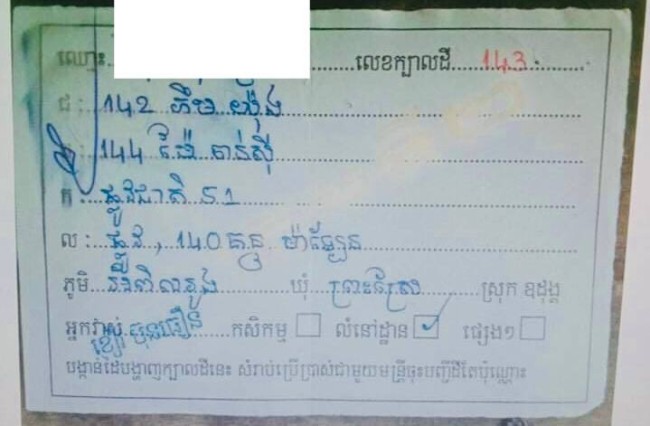 ឈ្មោះ លេខក្បាលដី 143
ជ : 142 គឹម យ៉ុង
ត្ប : 144 ម៉ៃ ចាន់ស៊ី
ក : ផ្លូវជាតិ 51
ល : ផ្លូវ, 140 គន្ធ ម៉ាឡៃន
ភូមិ អំពិលរូង ឃុំ ព្រះស្រែ ស្រុក ឧដុង្គ
អ្នកវាស់ កសិកម្ម លំនៅដ្ឋាន ផ្សេងៗ
បង្កាន់ដៃបង្ហាញក្បាលដីនេះ សំរាប់ប្រើប្រាស់ជាមួយមន្ត្រីចុះបញ្ជីដីតែប៉ុណ្ណោះ